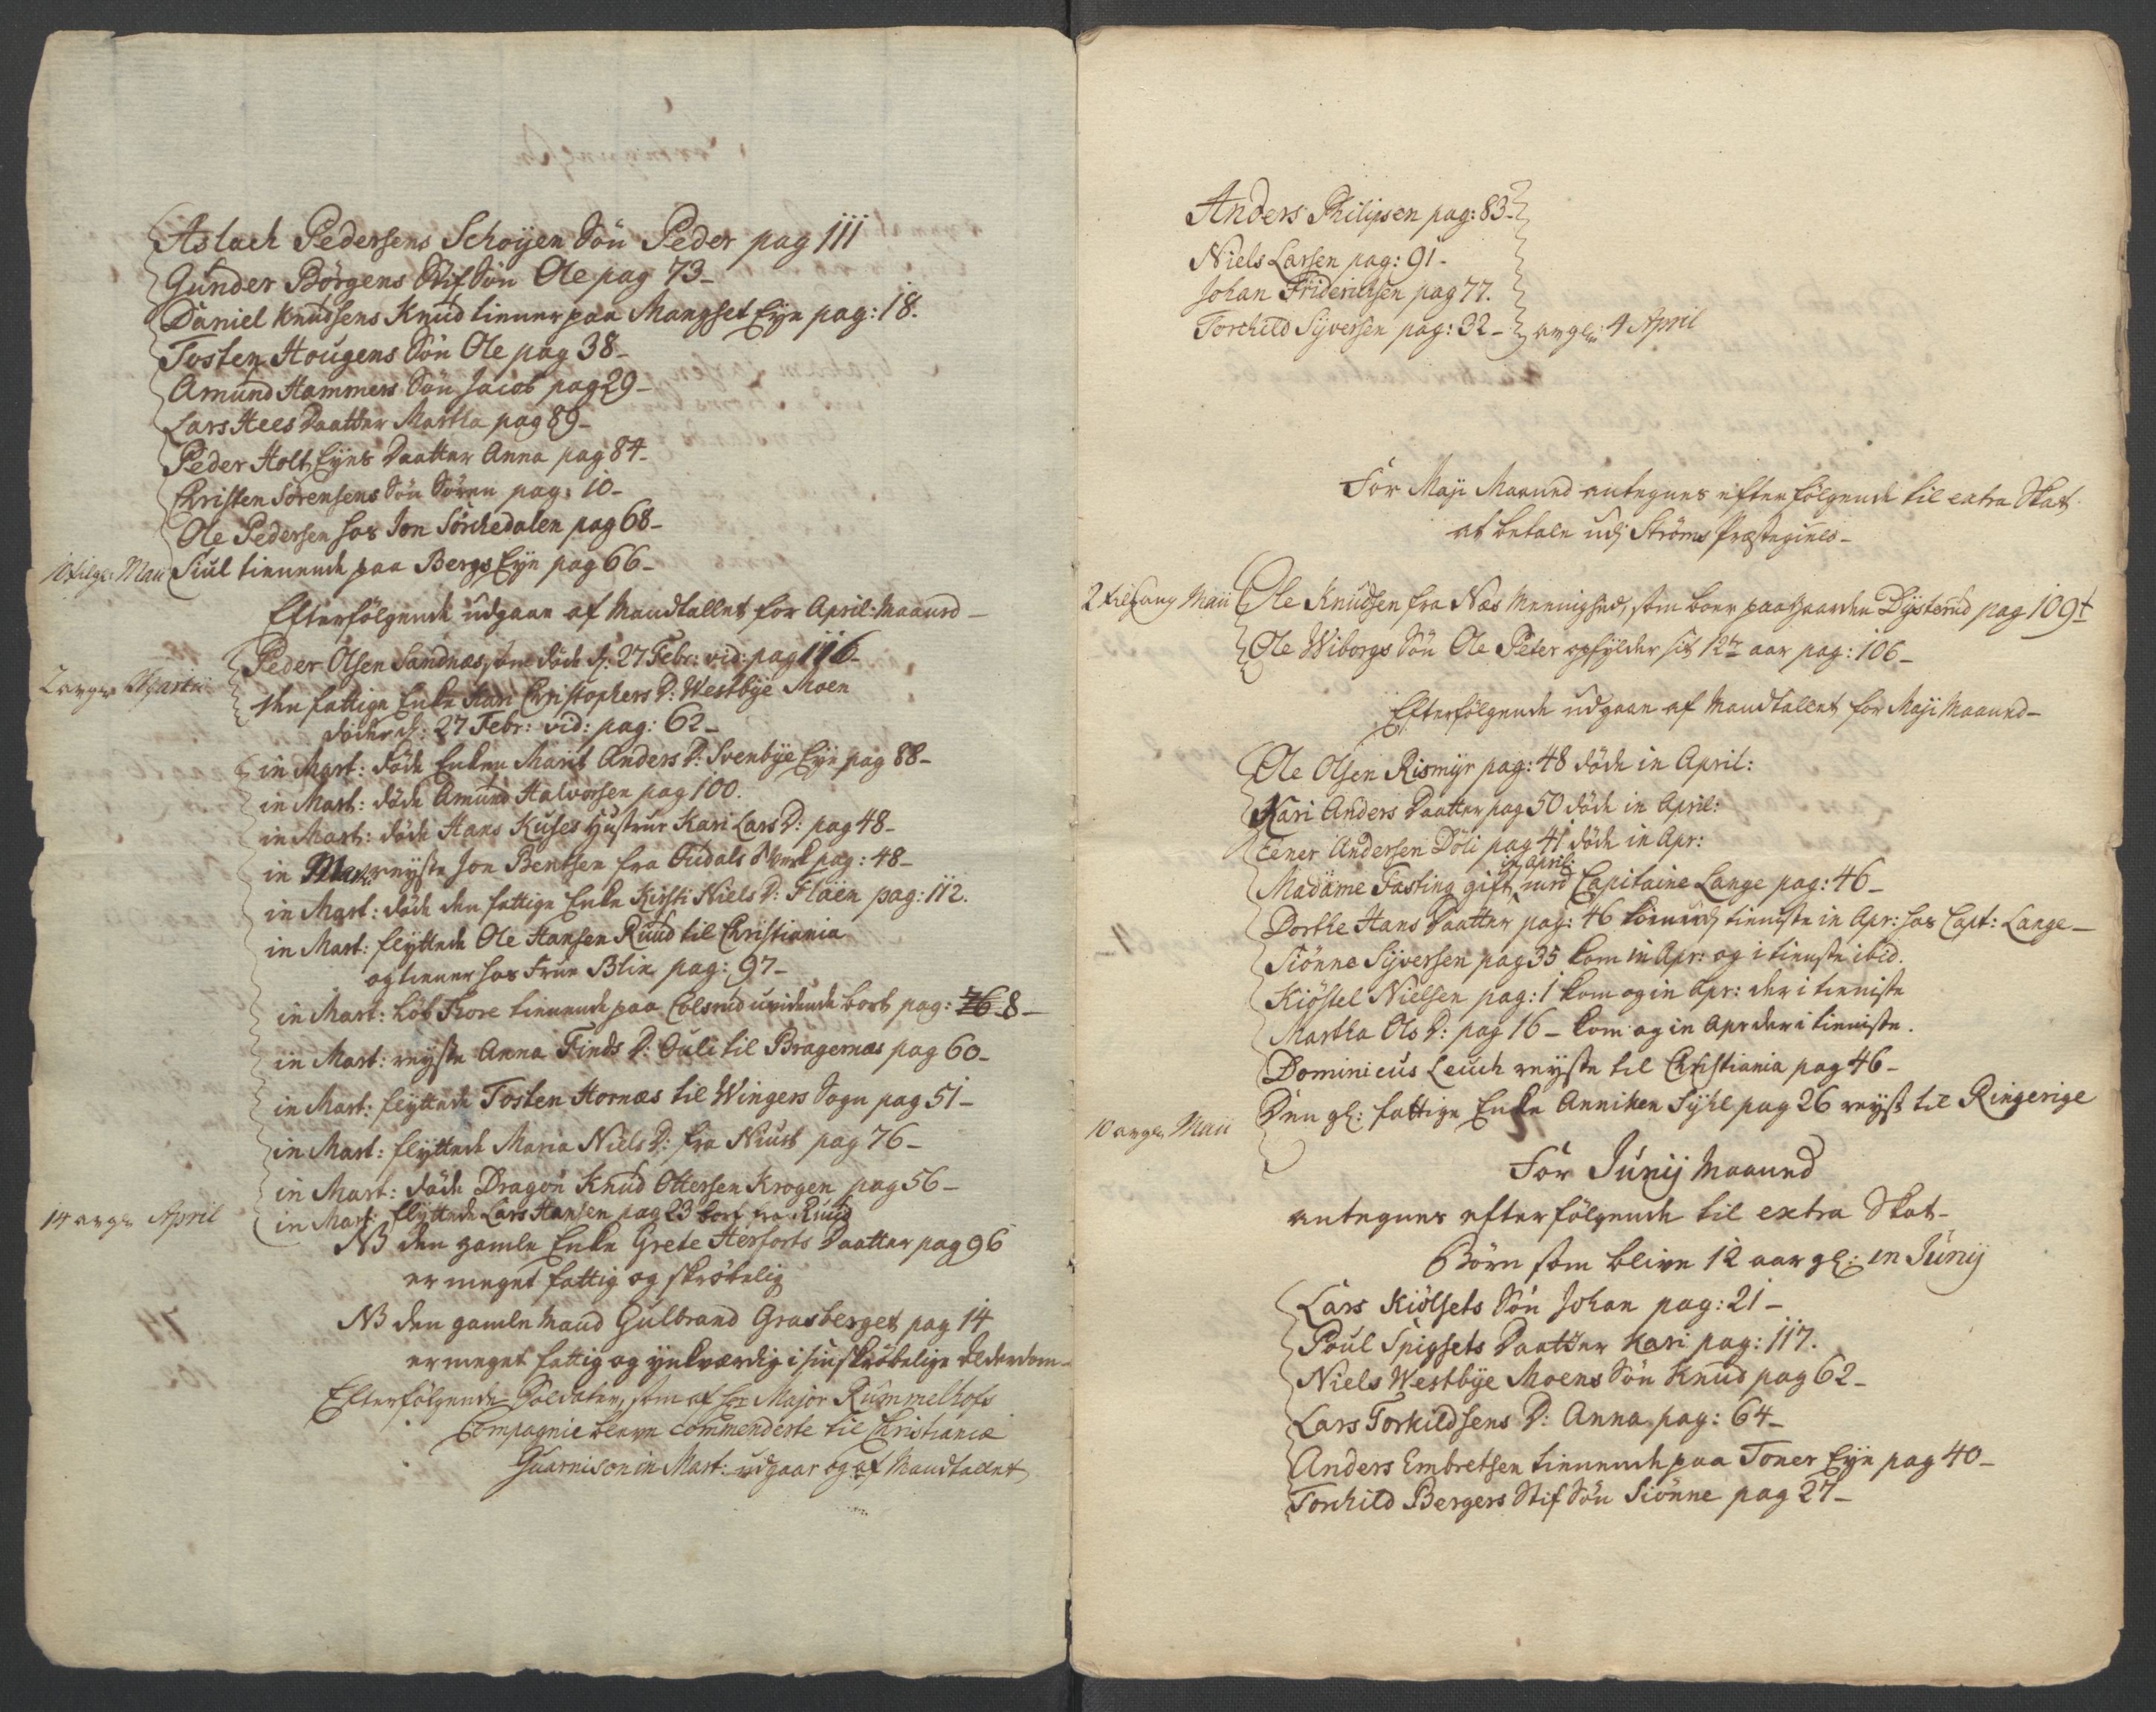 Aslach Pedersens Schoÿen Søn Peder pag 111
Gunder Børgens Stif Søn Ole pag 73-
Daniel Knudsens Knud tienner paa Mangset Eÿe pag: 18.
Tosten Hougens Søn Ole pag 38-
Amund Hammers Søn Jacob pag 29-
Lars Hees Daatter Martha pag 89-
Peder Holt Eÿes Daatter Anna pag 84-
Christen Sørensens Søn Søren pag: 10-
Ole Pedersen hos Jon Sørchedalen pag 68-
10 tilg: Maii Siul tienende paa Bergs Eÿe pag 66-
Efterfølgende udgaae af Mandtallet for April: Maaned-
Peder Olsen Sandnæs, som døde d: 27 Febr: vid: pag 116-
2 avge Martii
den fattige Enke Kari Christophers D: Westbÿe Moen
døde d: 27 Febr: vid: pag: 62-
in Mart: døde Enken Marit Anders D: Svenbÿe Eÿe pag 88-
in Mart: døde Amund Halvorsen pag 100.
in Mart: døde Hans Kuses Hustrue Kari Lars D: pag 48-
in Mart: reÿste Jon Bentsen fra Oudals Werk pag: 48-
in Mart: døde den fattige Enke Kirsti Niels D: Flaen pag: 112.
in Mart: flÿttede Ole Hansen Ruud til Christiania
og tiener hos Frue Blix pag: 97-
in Mart: løb Thore tienende paa Colsrud uvidende bort pag: 76 8-
in Mart: reÿste Anna Finds D: Ouli til Bragernæs pag 60-
in Mart: flÿttede Tosten Hornæs til Wingers Sogn pag 51-
in Mart: flÿttede Maria Niels D: fra Niust pag 76-
in Mart: døde Dragon Knud Ottersen Krogen pag 56-
14 avge April in Mart: flÿttede Lars Hansen pag 23 bort fra Ruud
NB den gamle Enke Grete Herforts Daatter pag 96
er meget fattig og skrøbelig
NB den gamle Mand Gulbrand Grasberget pag 14
er meget fattig og ÿnkværdig i sin skrøbelige Alderdom-
Efterfølgende Soldater, som af Hr Major Rummelhofs
Compagnie bleve commenderte til Christiania
Guarnison in Mart: udgaar og af Mandtallet
Anders Philipsen pag: 83-
Niels Larsen pag: 91-
Johan Friderichsen pag 77.
Torchild Sÿversen pag: 32- avge: 4 April
For Maji Maaned antegnes efterfølgende til extra Skat
at betale udj Strøms Præstegield-
2 tilgang Maii Ole Knudsen fra Næs Menighed, som boer paa Gaarden Dÿsterud pag 109 t
Ole Wiborgs Søn Ole Peter opfÿlder sit 12te aar pag: 106-
Efterfølgende udgaae af Mandtallet for Maji Maaned-
Ole Olsen Rismÿr pag: 48 døde in April:
Kari Anders Daatter pag 50 døde in April:
Eener Andersen Döli pag 41 døde in Apr:
in April:
Madame Fasting gift med Capitaine Lange pag: 46-
Dorthe Hans Daatter pag: 46 kom udj tieniste in Apr: hos Capt: Lange-
Siønne Sÿversen pag 35 kom in Apr: og i tienste ibid.
Kiøstel Nielsen pag: 1 kom og in Apr: der i tieniste
Martha Ols D: pag 16- kom og in Apr der i tieniste.
Dominicus Leuch reÿste til Christiania pag 46-
10 avge Maii Den gl: fattige Enke Anniken Sÿhl pag 26 reÿst til Ringerige
For Junij Maaned
antegnes efterfølgende til extra Skat-
Børn som blive 12 aar gl: in Junij
Lars Kiølsets Søn Johan pag: 21-
Poul Spigsets Daatter Kari pag: 117.
Niels Westbÿe Moens Søn Knud pag 62-
Lars Torkildsens D: Anna pag: 64-
Anders Embretsen tienende paa Toner Eÿe pag 40-
Torchild Bergers Stif Søn Siønne pag 27-